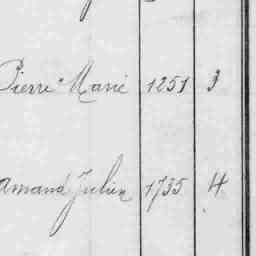 Pierre Marie 1251 3
amand Julien 1735 4